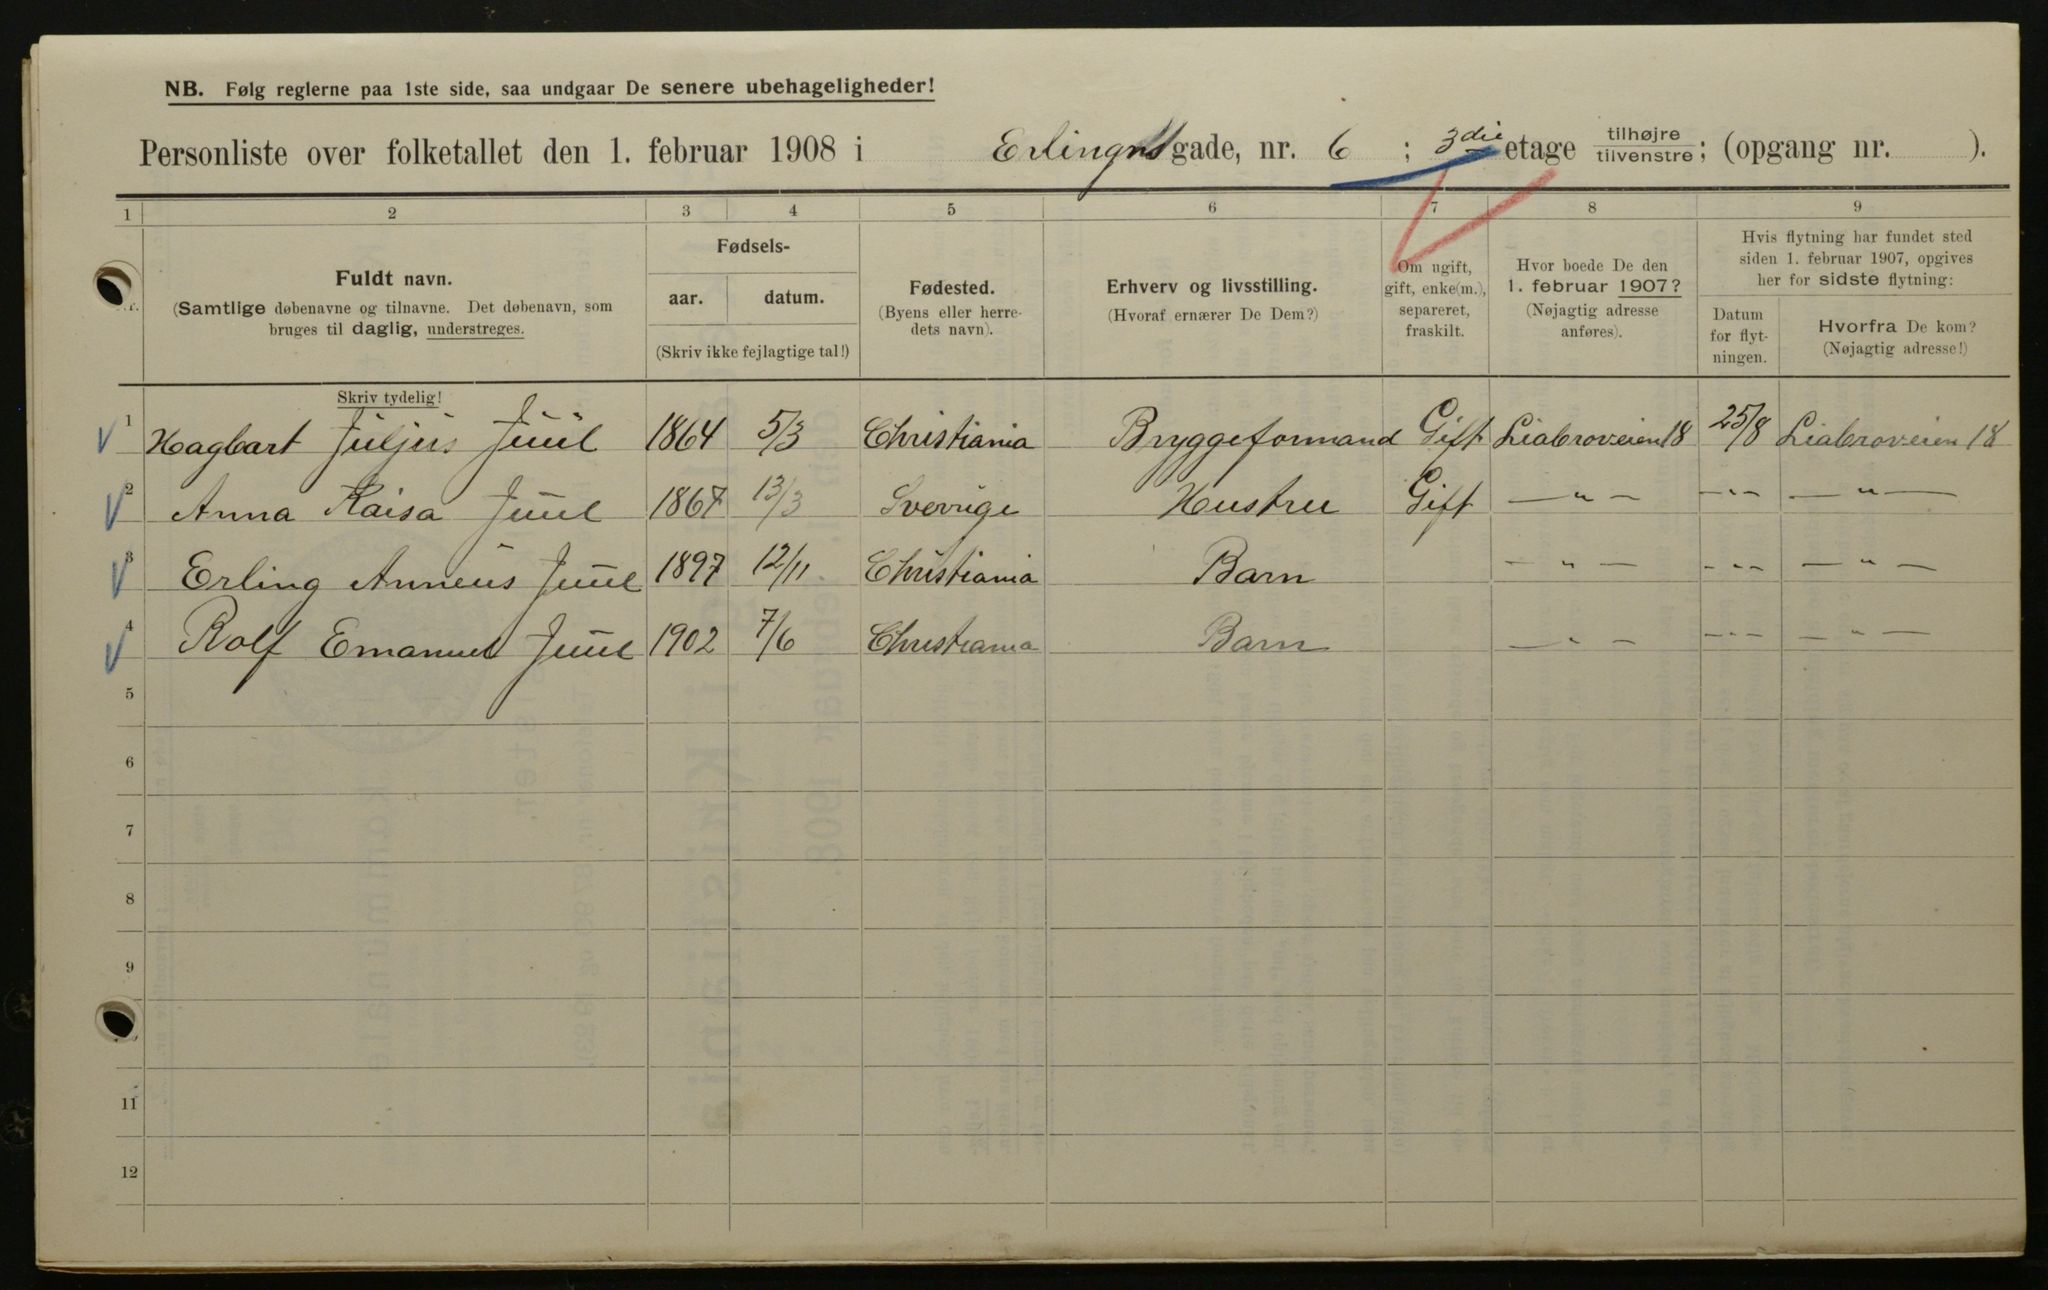 NB. Følg reglerne paa 1ste side, saa undgaar De senere ubehageligheder!
Personliste over folketallet den 1. februar 1908 i Erlings gade, nr. 6 ; 3die etage tilhøjre tilvenstre; (opgang nr. ).
1 2 3 4 5 6 7 8 9
Fuldt navn.
(Samtlige døbenavne og tilnavne. Det døbenavn, som
bruges til daglig, understreges.
Skriv tydelig!
Fødsels-
aar. datum.
(Skriv ikke fejlagtige tal!)
Fødested.
(Byens eller herre-
dets navn).
Erhverv og livsstilling.
(Hvoraf ernærer De Dem?)
Om ugift,
gift, enke(m.),
separeret,
fraskilt.
Hvor boede De den
1. februar 1907?
(Nøjagtig adresse
anføres).
Hvis flytning har fundet sted
siden 1. februar 1907, opgives
her for sidste flytning:
Datum
for flyt-
ningen.
Hvorfra De kom?
(Nøjagtig adresse!)
1 Hagbart Juljus Juul 1864 5/3 Christiania Bryggeformand Gift Liabroveien 18 25/8 Liabroveien 18
2 Anna Kaisa Juul 1867 13/3 Sverrige Hustru Gift — " — — " — — " —
3 Erling Anneus Juul 1897 12/11 Christiania Barn — " — — " — — " —
4 Rolf Emanuel Juul 1902 7/6 Christiania Barn — " — — " — — " —
5
6
7
8
9
11
12